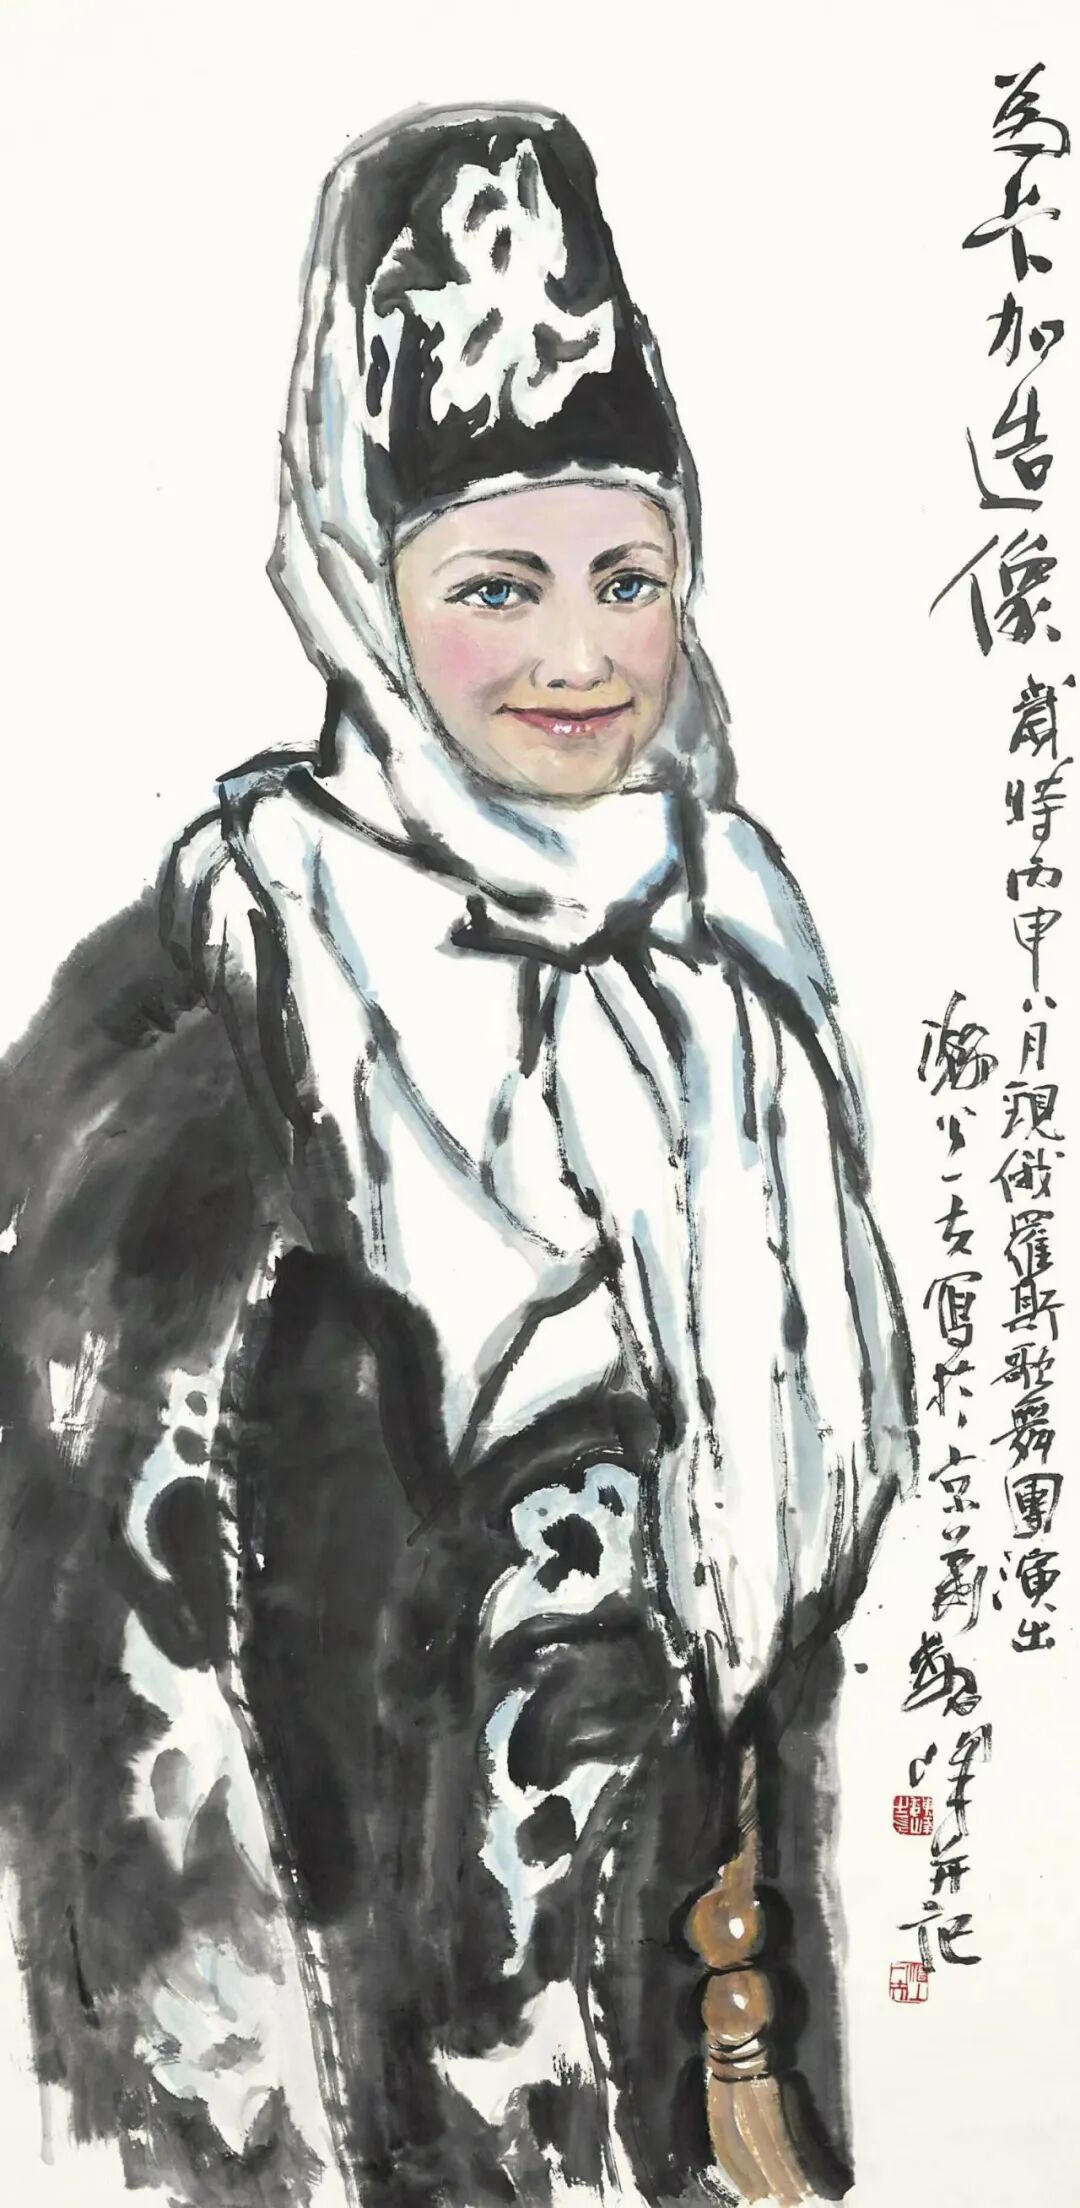 為卡加造像 歲時丙申八月現俄羅斯歌舞團演出
公一夫寫於京華 峰并記